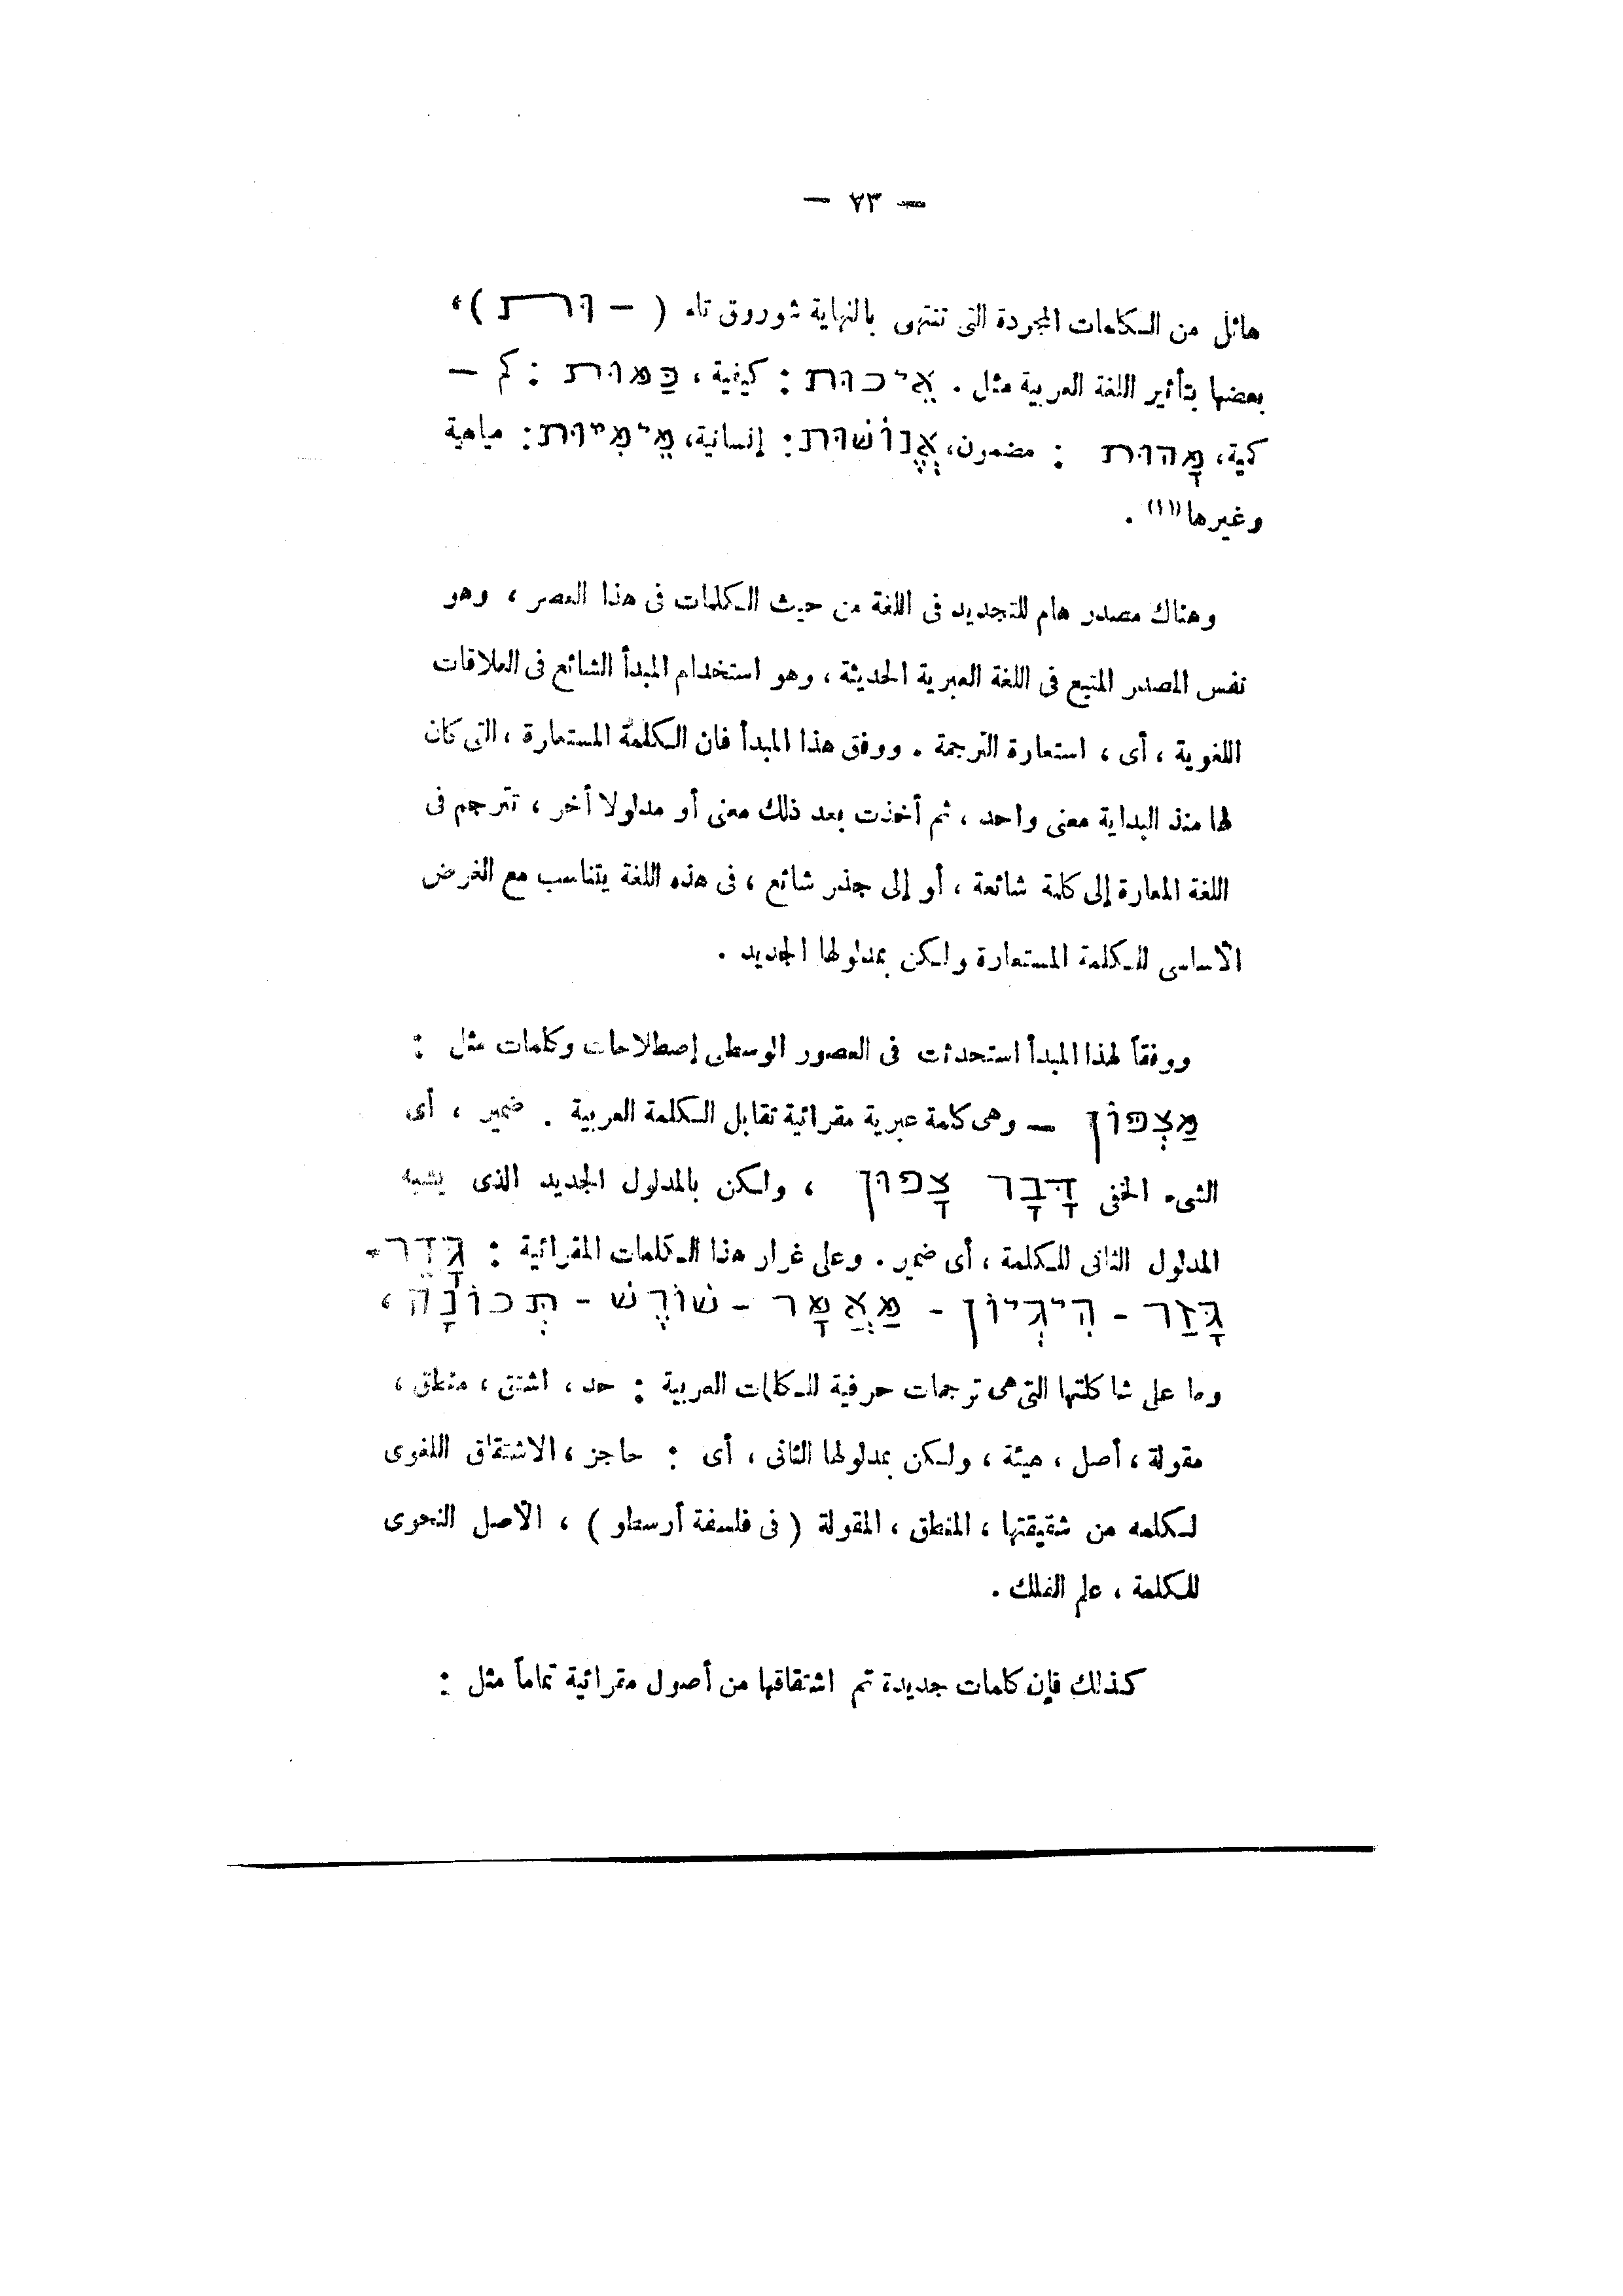 — ٧٣ —
هائل من الكلمات المجردة التى تنتهى بالنهاية شوروق تاء ( — וּת )،
بعضها بتأثير اللغة العربية مثل . אֵיכוּת : كيفية ، כַּמּוּת : كم —
كمية، מָהוּת : مضمون، אֱנוֹשׁוּת : إنسانية، מֵימִיּוּת : مياهية
وغيرها(١١) .
وهناك مصدر هام للتجديد فى اللغة من حيث الكلمات فى هذا العصر ، وهو
نفس المصدر المتبع فى اللغة العبرية الحديثة ، وهو استخدام المبدأ الشائع فى العلاقات
اللغوية ، أى ، استعارة الترجمة . ووفق هذا المبدأ فان الكلمة المستعارة ، التى كان
لها منذ البداية معنى واحد ، ثم أخذت بعد ذلك معنى أو مدلولا أخر ، تترجم فى
اللغة المعارة إلى كلمة شائعة ، أو إلى جذر شائع ، فى هذه اللغة يتناسب مع الغرض
الأساسى للكلمة المستعارة ولكن بمدلولها الجديد .
ووفقاً لهذا المبدأ استحدثت فى العصور الوسطى إصطلاحات وكلمات مثل :
מַצְפּוֹן — وهى كلمة عبرية مقرائية تقابل الكلمة العربية . ضمير ، أى
الشىء الخفى דָּבָר צָפוּן ، ولكن بالمدلول الجديد الذى يشبه
المدلول الثانى للكلمة ، أى ضمير . وعلى غرار هذا الكلمات المقرائية : גָּדֵר-
גָּזַר - הִיגְיוֹן - מַאֲמָר - שׁוֹרֶשׁ - תְּכוּנָה ،
وما على شاكلتها التى هى ترجمات حرفية للكلمات العربية : حد ، اشتق ، منطق ،
مقولة ، أصل ، هيئة ، ولكن بمدلولها الثانى ، أى : حاجز ، الاشتقاق اللغوى
لكلمه من شقيقتها ، المنطق ، المقولة ( فى فلسفة أرسطو ) ، الأصل النحوى
للكلمة ، علم الفلك .
كذلك فإن كلمات جديدة تم اشتقاقها من أصول مقرائية تماماً مثل :